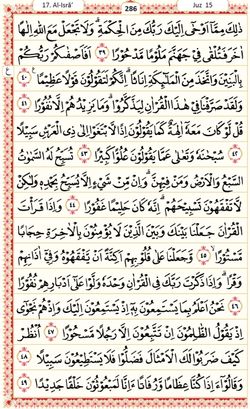 17. Al-Isrâ'
286
Juz 15
ذَٰلِكَ مِمَّا أَوْحَىٰ إِلَيْكَ رَبُّكَ مِنَ الْحِكْمَةِ وَلَا تَجْعَلْ مَعَ اللَّهِ إِلَٰهًا
آخَرَ فَتُلْقَىٰ فِي جَهَنَّمَ مَلُومًا مَدْحُورًا ٣٩ أَفَأَصْفَاكُمْ رَبُّكُمْ
بِالْبَنِينَ وَاتَّخَذَ مِنَ الْمَلَائِكَةِ إِنَاثًا إِنَّكُمْ لَتَقُولُونَ قَوْلًا عَظِيمًا ٤٠
وَلَقَدْ صَرَّفْنَا فِي هَٰذَا الْقُرْآنِ لِيَذَّكَّرُوا وَمَا يَزِيدُهُمْ إِلَّا نُفُورًا ٤١
قُلْ لَوْ كَانَ مَعَهُ آلِهَةٌ كَمَا يَقُولُونَ إِذًا لَابْتَغَوْا إِلَىٰ ذِي الْعَرْشِ سَبِيلًا
٤٢ سُبْحَانَهُ وَتَعَالَىٰ عَمَّا يَقُولُونَ عُلُوًّا كَبِيرًا ٤٣ تُسَبِّحُ لَهُ السَّمَٰوَاتُ
السَّبْعُ وَالْأَرْضُ وَمَنْ فِيهِنَّ وَإِنْ مِنْ شَيْءٍ إِلَّا يُسَبِّحُ بِحَمْدِهِ وَلَٰكِنْ
لَا تَفْقَهُونَ تَسْبِيحَهُمْ إِنَّهُ كَانَ حَلِيمًا غَفُورًا ٤٤ وَإِذَا قَرَأْتَ
الْقُرْآنَ جَعَلْنَا بَيْنَكَ وَبَيْنَ الَّذِينَ لَا يُؤْمِنُونَ بِالْآخِرَةِ حِجَابًا
مَسْتُورًا ٤٥ وَجَعَلْنَا عَلَىٰ قُلُوبِهِمْ أَكِنَّةً أَنْ يَفْقَهُوهُ وَفِي آذَانِهِمْ
وَقْرًا وَإِذَا ذَكَرْتَ رَبَّكَ فِي الْقُرْآنِ وَحْدَهُ وَلَّوْا عَلَىٰ أَدْبَارِهِمْ نُفُورًا
٤٦ نَحْنُ أَعْلَمُ بِمَا يَسْتَمِعُونَ بِهِ إِذْ يَسْتَمِعُونَ إِلَيْكَ وَإِذْ هُمْ نَجْوَىٰ
إِذْ يَقُولُ الظَّالِمُونَ إِنْ تَتَّبِعُونَ إِلَّا رَجُلًا مَسْحُورًا ٤٧ انْظُرْ
كَيْفَ ضَرَبُوا لَكَ الْأَمْثَالَ فَضَلُّوا فَلَا يَسْتَطِيعُونَ سَبِيلًا ٤٨
وَقَالُوا أَإِذَا كُنَّا عِظَامًا وَرُفَاتًا أَإِنَّا لَمَبْعُوثُونَ خَلْقًا جَدِيدًا ٤٩